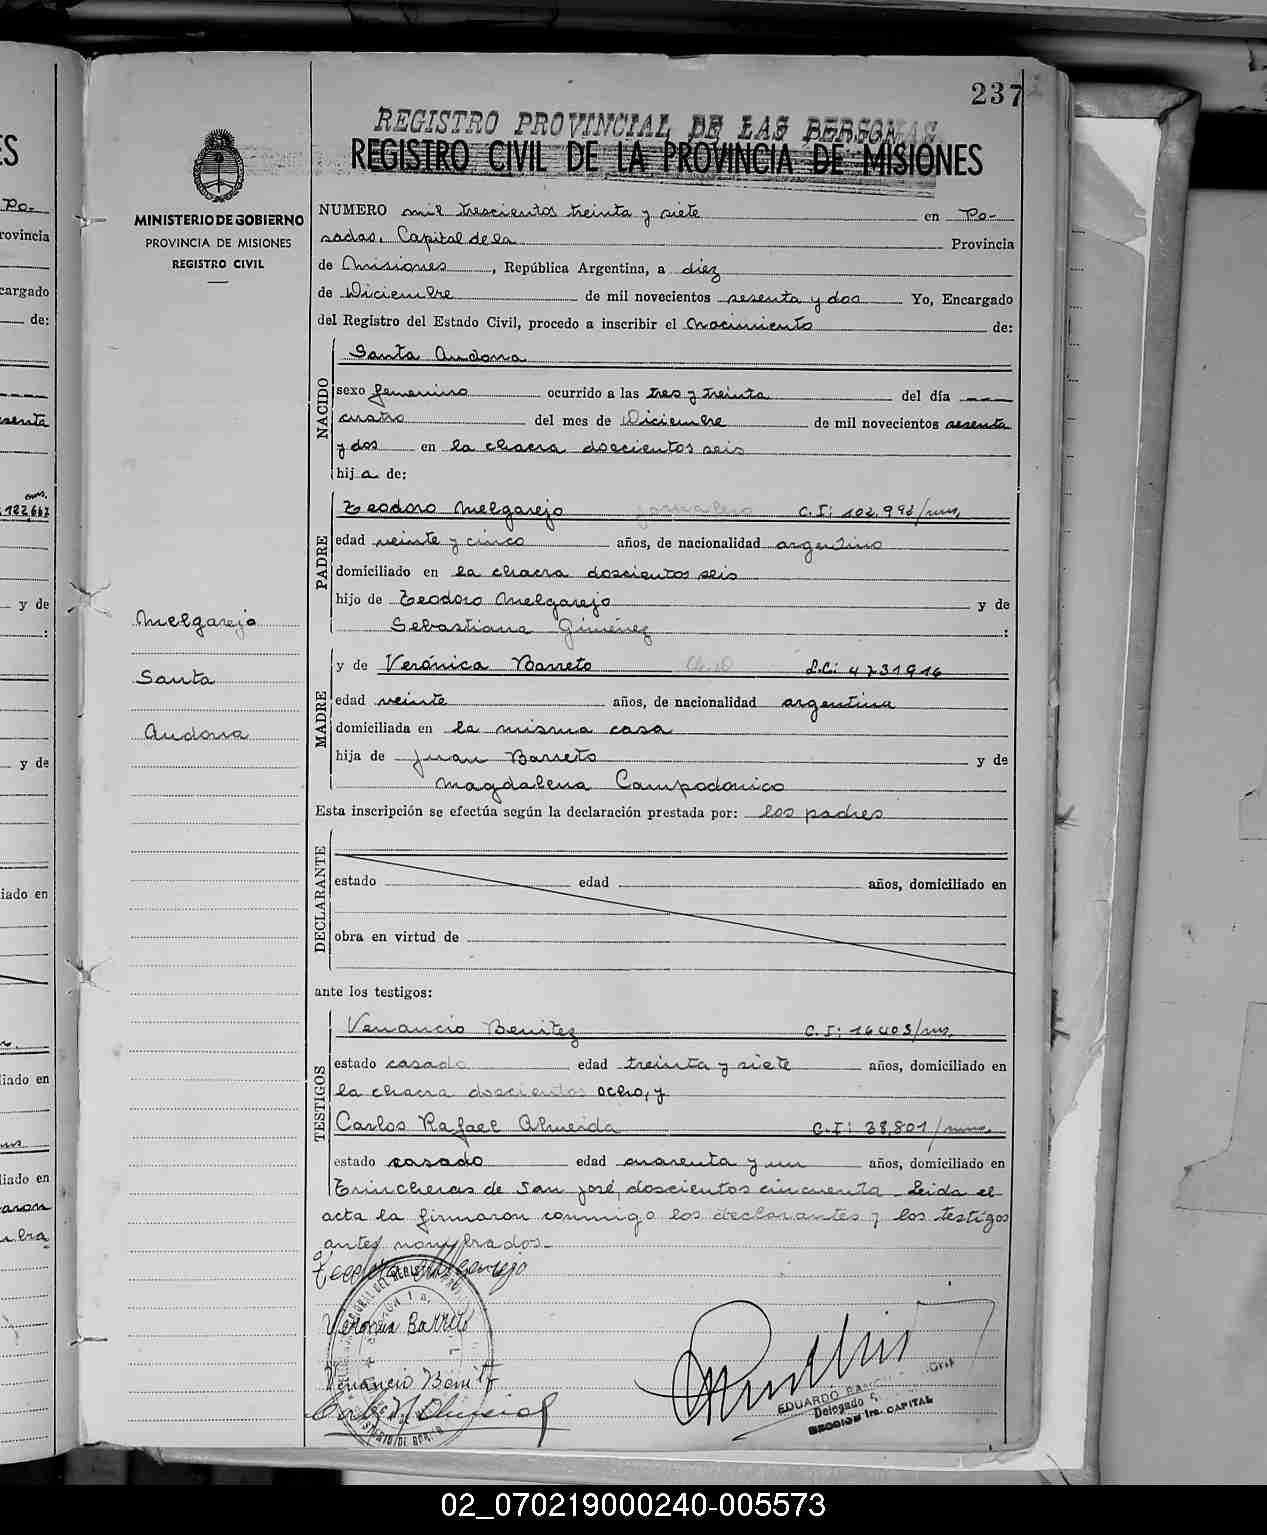 237
REGISTRO PROVINCIAL DE LAS PERSONAS
REGISTRO CIVIL DE LA PROVINCIA DE MISIONES
MINISTERIO DE GOBIERNO
PROVINCIA DE MISIONES
REGISTRO CIVIL
Melgarejo
Santa
Audona
NUMERO mil trescientos treinta y siete en Po-
sadas, Capital de la Provincia
de Misiones, República Argentina, a diez
de Diciembre de mil novecientos sesenta y dos Yo, Encargado
del Registro del Estado Civil, procedo a inscribir el Nacimiento de:
NACIDO
Santa Audona
sexo femenino ocurrido a las tres y treinta del día ---
cuatro del mes de Diciembre de mil novecientos sesenta
y dos en la chacra doscientos seis
hija de:
PADRE
Teodoro Melgarejo jornalero C.I: 102.993/mns.
edad veinte y cinco años, de nacionalidad argentino
domiciliado en la chacra doscientos seis
hijo de Teodoro Melgarejo y de
Sebastiana Giménez :
MADRE
y de Verónica Barreto L.C: 4731916
edad veinte años, de nacionalidad argentina
domiciliada en la misma casa
hija de Juan Barreto y de
Magdalena Campodonico
Esta inscripción se efectúa según la declaración prestada por: los padres
DECLARANTE
estado edad años, domiciliado en
obra en virtud de
ante los testigos:
TESTIGOS
Venancio Benitez C.I: 16403/mns.
estado casado edad treinta y siete años, domiciliado en
la chacra doscientos ocho, y
Carlos Rafael Almeida C.I: 38,801/mns.
estado casado edad cuarenta y un años, domiciliado en
Trincheras de San José, doscientos cincuenta Leida el
acta la firmaron conmigo los declarantes y los testigos
antes nombrados.-
Teodoro Melgarejo
Veronica Barreto
Venancio Benitz
EDUARDO RAMON
Delegado
SECCION 1ra. CAPITAL
02_070219000240-005573